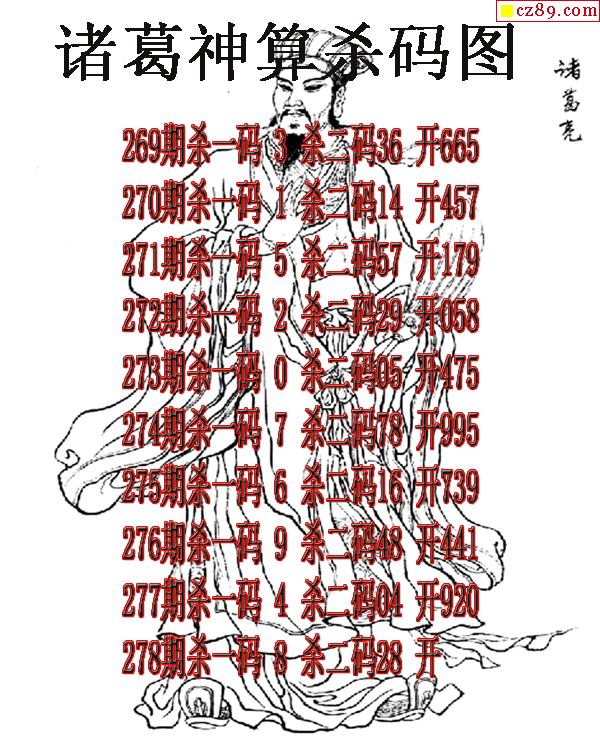 cz89.com
诸葛神算杀码图
诸葛亮
269期杀一码 3 杀二码36 开665
270期杀一码 1 杀二码14 开457
271期杀一码 5 杀二码57 开179
272期杀一码 2 杀二码29 开058
273期杀一码 0 杀二码05 开475
274期杀一码 7 杀二码78 开995
275期杀一码 6 杀二码16 开739
276期杀一码 9 杀二码48 开441
277期杀一码 4 杀二码04 开920
278期杀一码 8 杀二码28 开